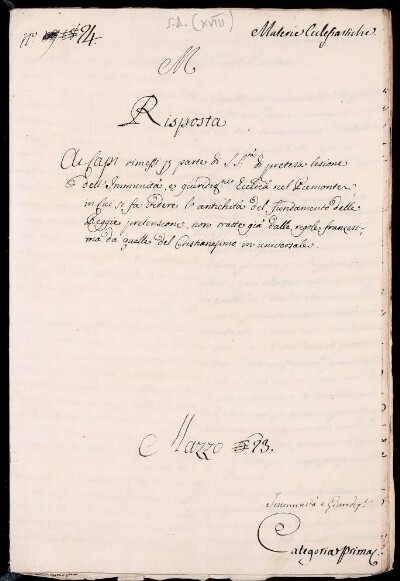 s.d. (XVIII)
nº 24.
Materie Eclesiastiche.
M
Risposta
Ai Capi rimessi p parte di S. S.tà di pretesa lesione
dell'Immunità, e giurisdiz.ne Ecc.tica nel Piemonte,
in cui si fa vedere l'antichità del fundamento delle
Reggie pretensione, non tratte già dalle regole francesi,
ma da quelle del Cristianesimo in universale.
Mazzo 23.
Immunità e Giurisdiz.e
Categoria Prima